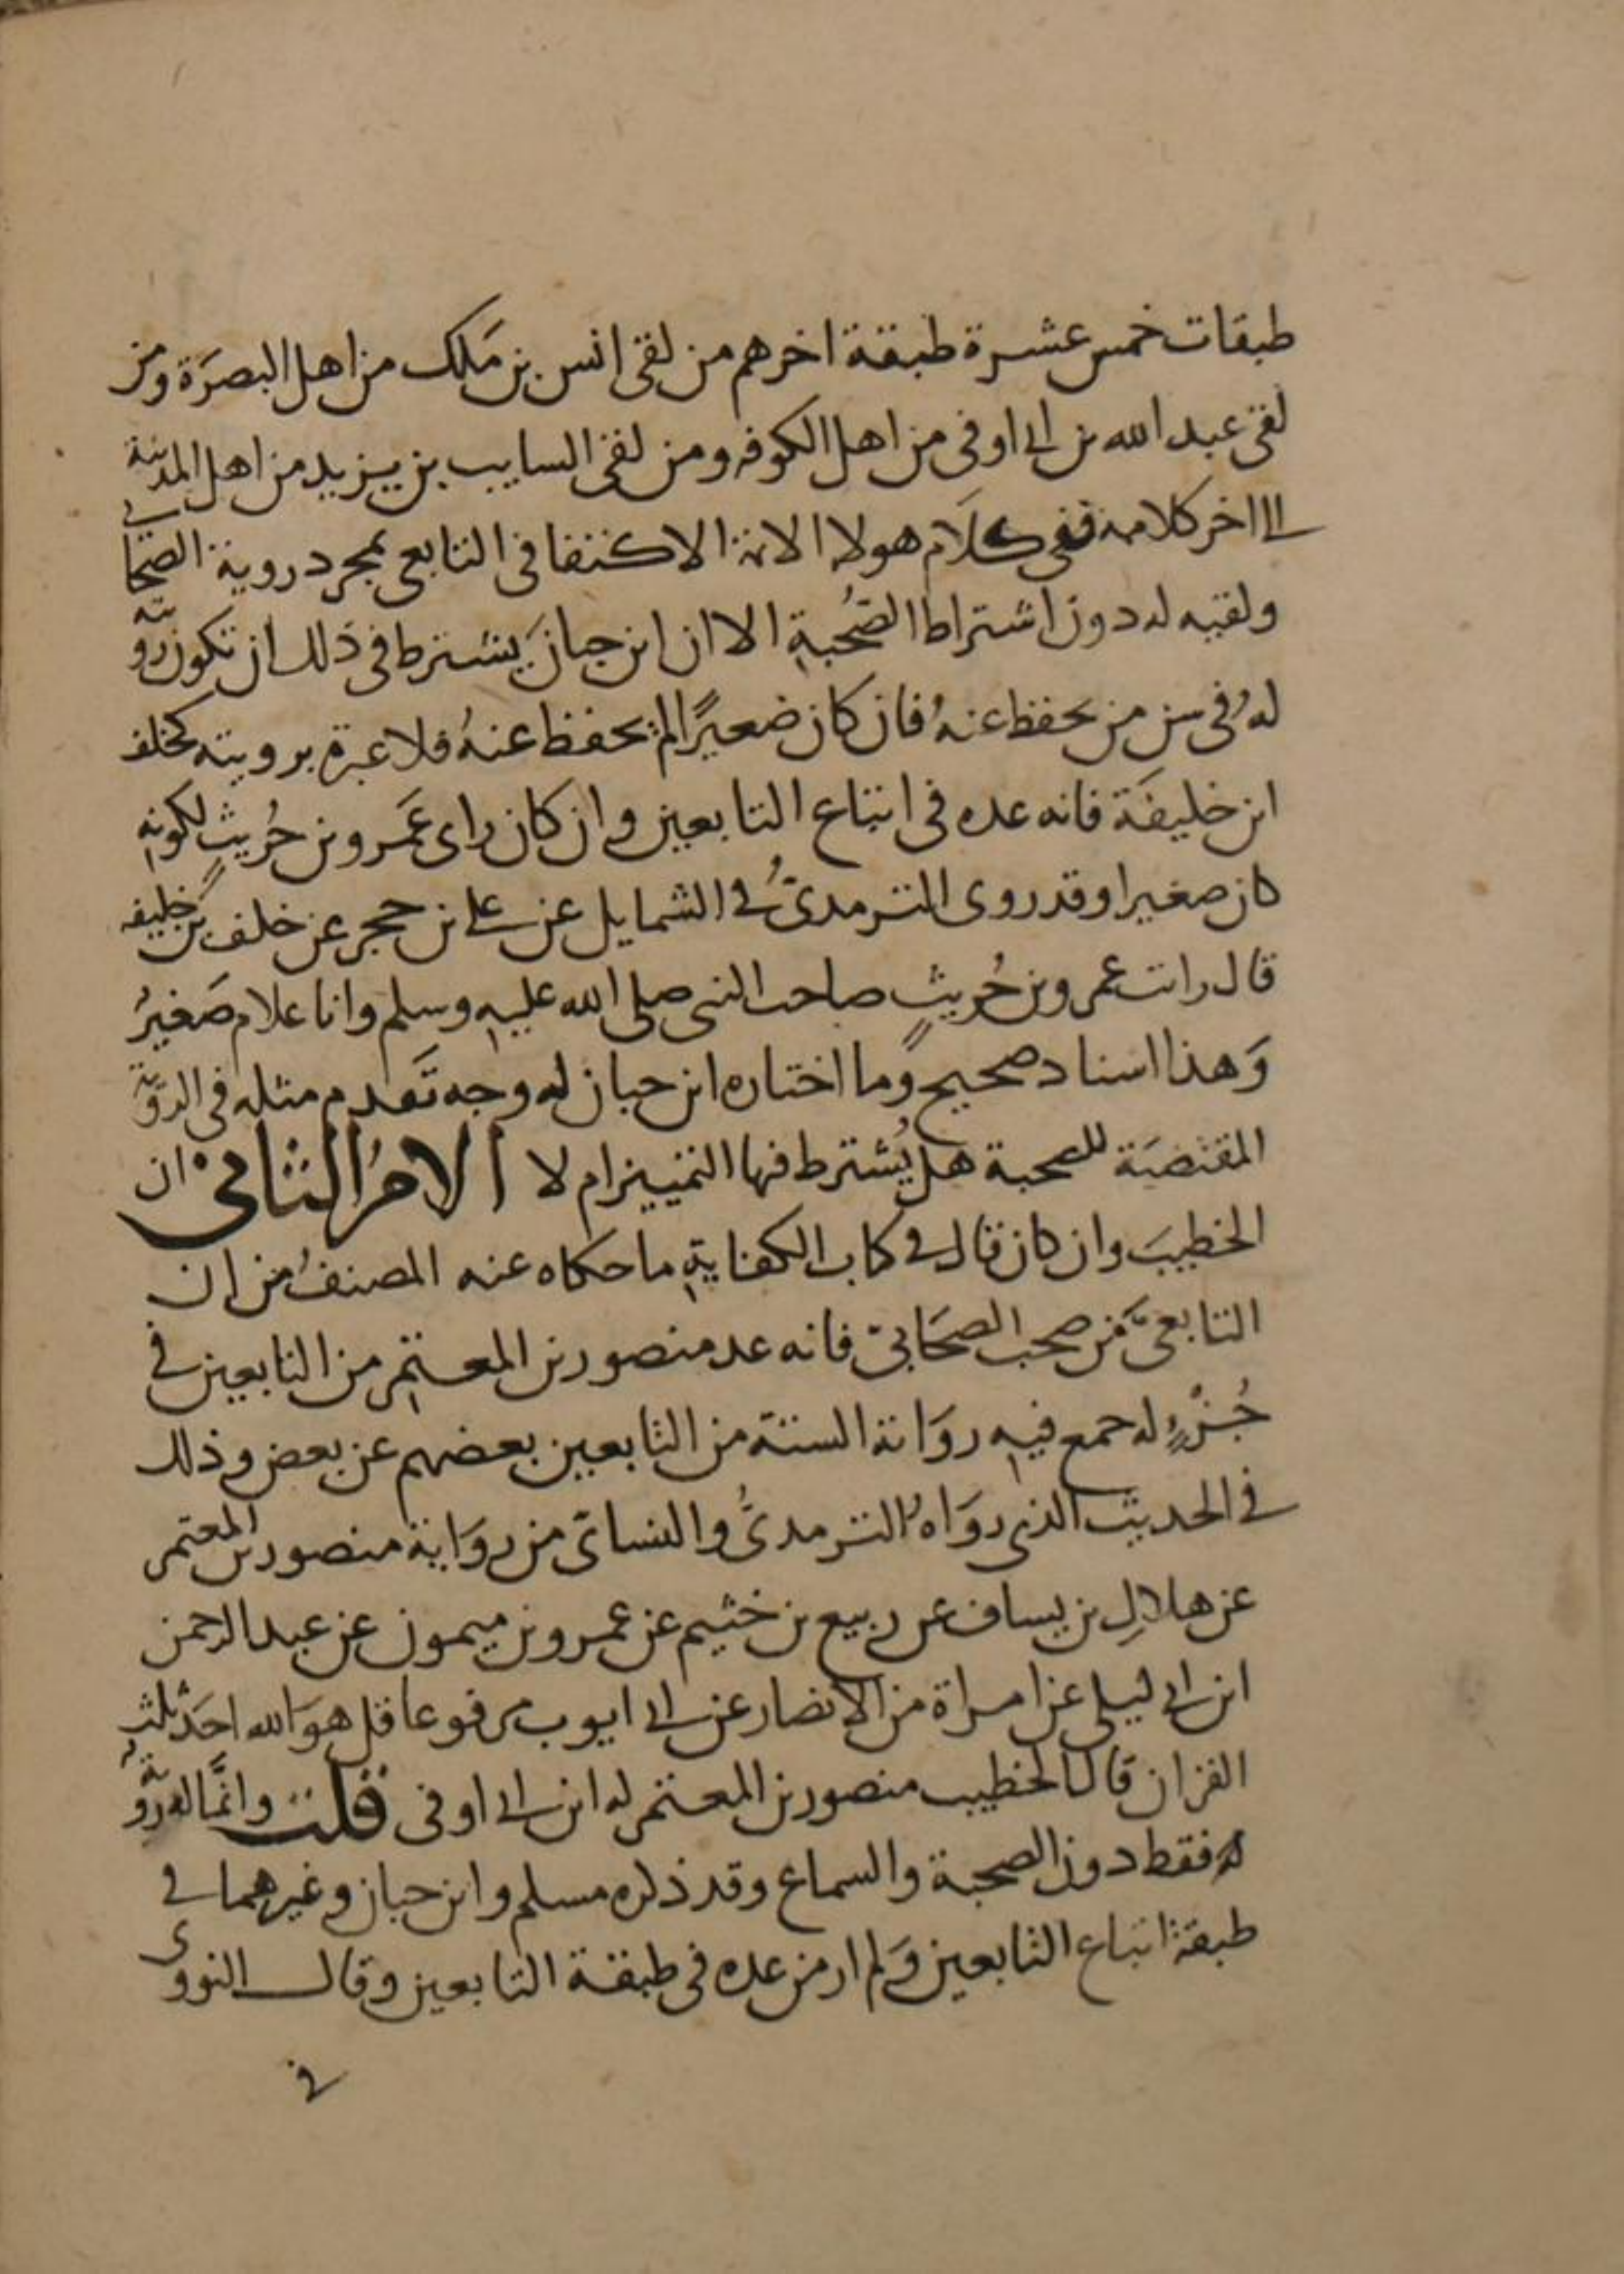 طبقات خمس عشرة طبقة اخرهم من لقى انس بن مَلك من اهل البصَرَة ومن
لقى عبد الله بن ابى اوفى من اهل الكوفه ومن لقى السايب بن يزيد من اهل المدينة
الى اخر كلامه ففى كلَام هولا الائمة الاكتفا فى التابعى بمجرد روية الصحابى
ولقيه له دون اشتراط الصُحبةِ الا ان ابن حبان يَشترط فى ذلك ان تكون رويته
لهُ فى سن من يحفظ عنهُ فان كان صغيرًا لم يحفظ عنهُ فلا عبرة برويته كخلف
ابن خليفَة فانه عده فى اتباع التابعين وان كان راى عَمرو بن حُريثٍ لكونهِ
كان صغيرا وقد روى الترمدىُّ فى الشمايل عن على بن حجر عن خلف بن خليفه
قال رايت عمرو بن حُريثٍ صاحب النبى صلى الله عليهِ وسلم وانا غلام صَغيرُ
وَهذا اسناد صحيح وما اختاره ابن حبان له وجه تَقدم مثله فى الروية
المقتضيَة للصحبة هل يُشترط فيها التمييز ام لا الامرُ الثانى ان
الخطيبَ وان كان قال فى كتاب الكفايةِ ما حكاه عنه المصنفُ من ان
التابعىَّ من صحب الصحَابىّ فانه عد منصور بن المعتمِر من التابعين فى
جُزْءٍ له جمع فيهِ روَاية الستة من التابعين بعضهم عن بعض وذلك
فى الحديث الذى روَاهُ الترمدىُّ والنساىّ من روَاية منصور بن المعتمر
عن هلالِ بن يساف عن ربيع بن خثيم عن عمرو بن ميمون عن عبد الرحمن
ابن ابى ليلى عن امراة من الانصار عن ابى ايوب مرفوعا قل هوَ الله احَد ثلث
القران قال الخطيب منصور بن المعتمر له ابن ابى اوفى قلت وانَّما له رويةٌ
له فقط دون الصحبة والسماع وقد ذكره مسلم وابن حبان وغيرهما فى
طبقة اتباع التابعين وَلم ار من عده فى طبقة التابعين وقال النووى
فى